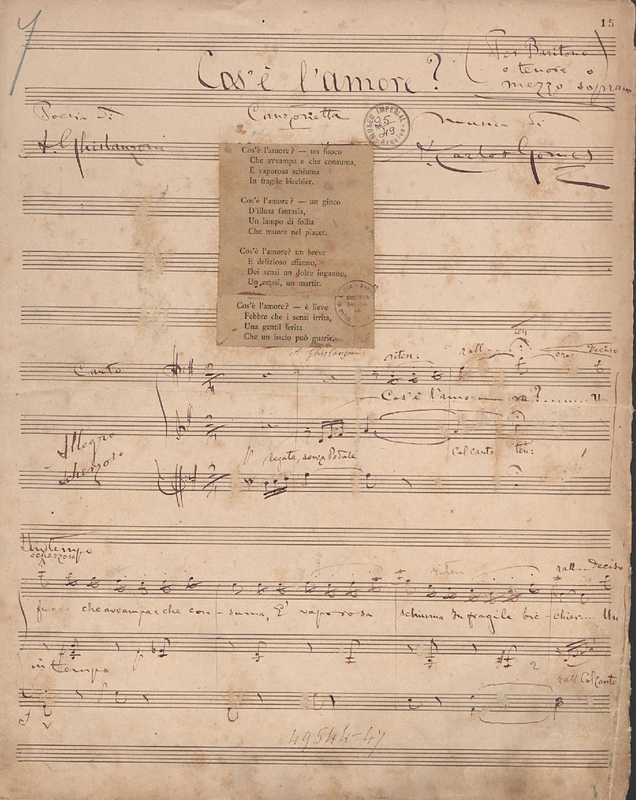 15
Cos'è l'amore?
(Per Baritono
o tenore o
mezzo soprano
Poesia di
Canzonetta
Musica di
A. Ghislanzoni
A. Carlos Gomes
MUSEO IMPERIAL
Cos'è l'amore? — un fuoco
Che avvampa e che consuma,
È vaporosa schiuma
In fragile bicchier.
Cos'è l'amore? — un gioco
D'illusa fantasia,
Un lampo di follia
Che muore nel piacer.
Cos'è l'amore? un breve
E delizioso affanno,
Dei sensi un dolce inganno,
Un estasi, un martir.
Cos'è l'amore? — è lieve
Febbre che i sensi irrita,
Una gentil ferita
Che un bacio può guarir.
A. Ghislanzoni
ten
riten. rall... deciso
Canto
Cos'è l'amo-re?........ Un
Allegro
scherzoso
p legate, senza Pedale
Col canto ten:
In tempo
scherzoso
riten rall... deciso
fuoco che avvampa e che con-suma, È vaporosa schiuma In fragile bic-chier... Un
in tempo
rall. Col Canto
49544-47